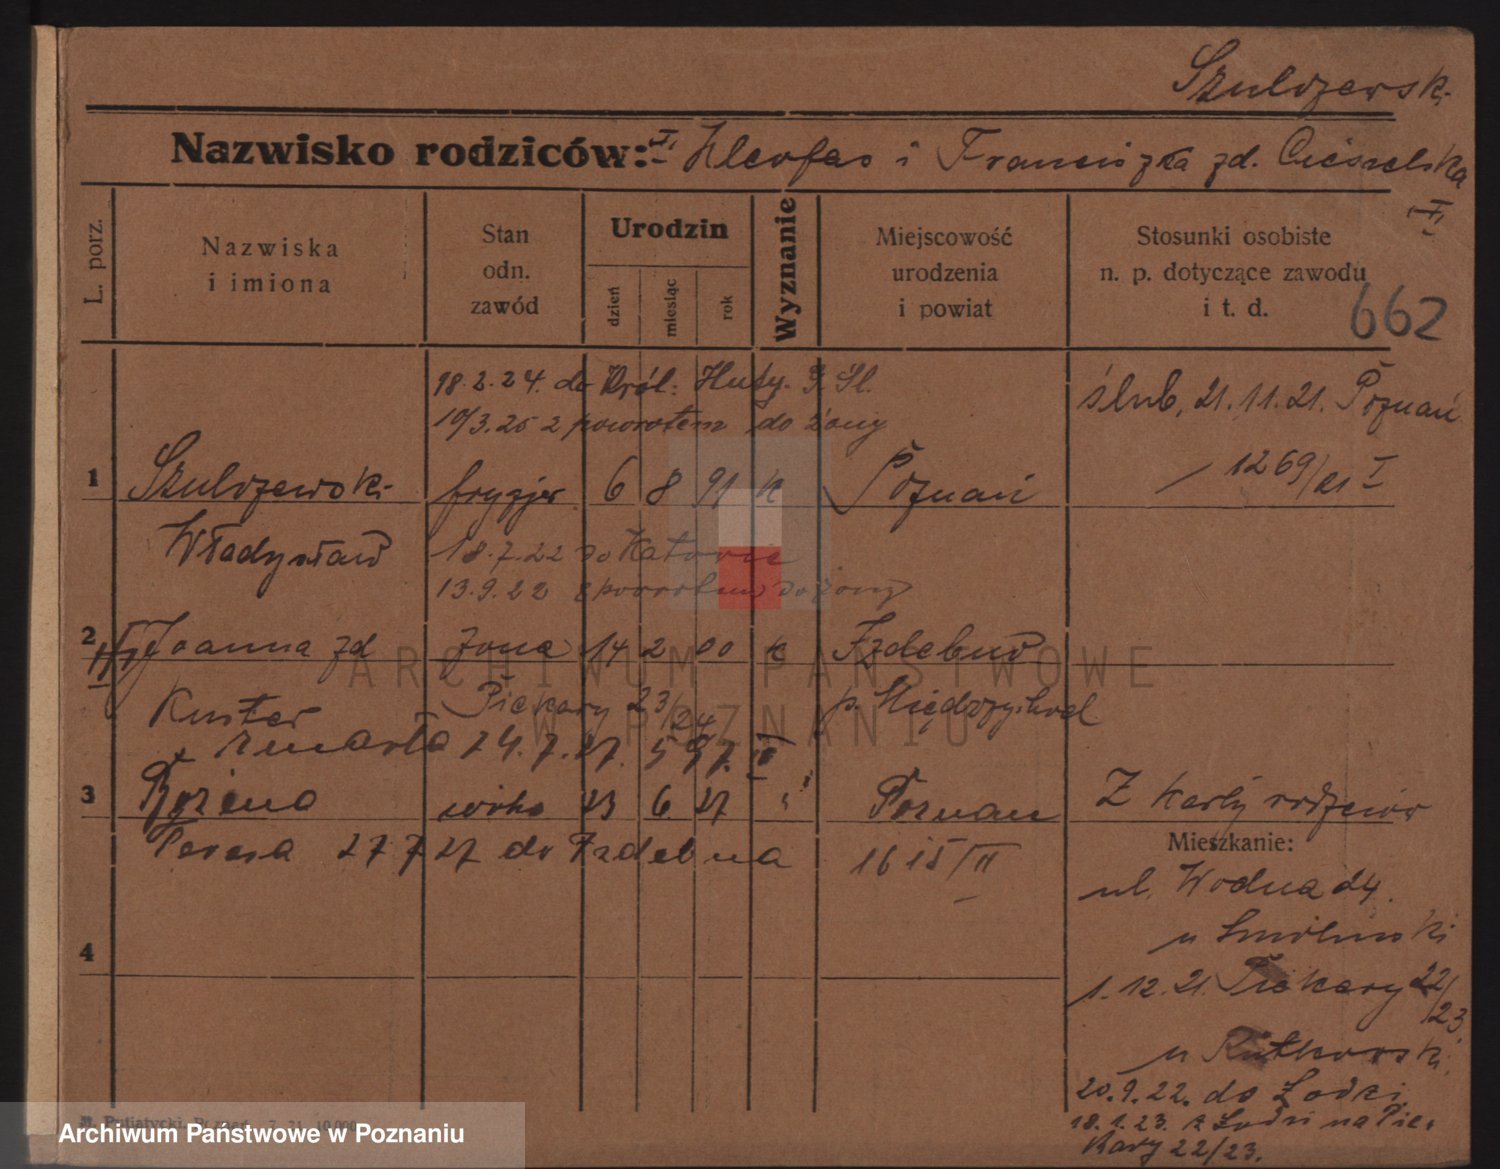 Szulczewski
Nazwisko rodziców: I. Kleofas i Franciszka zd. Ciesielska
I
L. porz.
Nazwiska
i imiona
Stan
odn.
zawód
Urodzin
dzień
miesiąc
rok
Wyznanie
Miejscowość
urodzenia
i powiat
Stosunki osobiste
n. p. dotyczące zawodu
i t. d.
662
18.2.24. do Król. Huty. G. Śl.
10/3.25 z powrotem do żony
ślub, 21.11.21. Poznań
1269/21 I
1 Szulczewski fryzjer 6 8 91 k Poznań
Władysław
18.7.22 do Katowic
13.9.22 z powrotem do żony
2 Joanna zd żona 14 2 00 k Izdebno
Kuster
Piekary 23/24
p. Międzychod
zmarła 24.7.27. 597. II
3 Bożena córka 23 6 27 " Poznań Z karty rodziców
Teresa 27 7 27 do Izdebna
1615/II
Mieszkanie:
ul. Wodna 24.
u Smoleński
4
1.12.21. Piekary 22/23
u Rutkowski
20.9.22. do Łodzi
18.1.23. z Łodzi na Pie-
kary 22/23.
ARCHIWUM PAŃSTWOWE
W POZNANIU
Archiwum Państwowe w Poznaniu